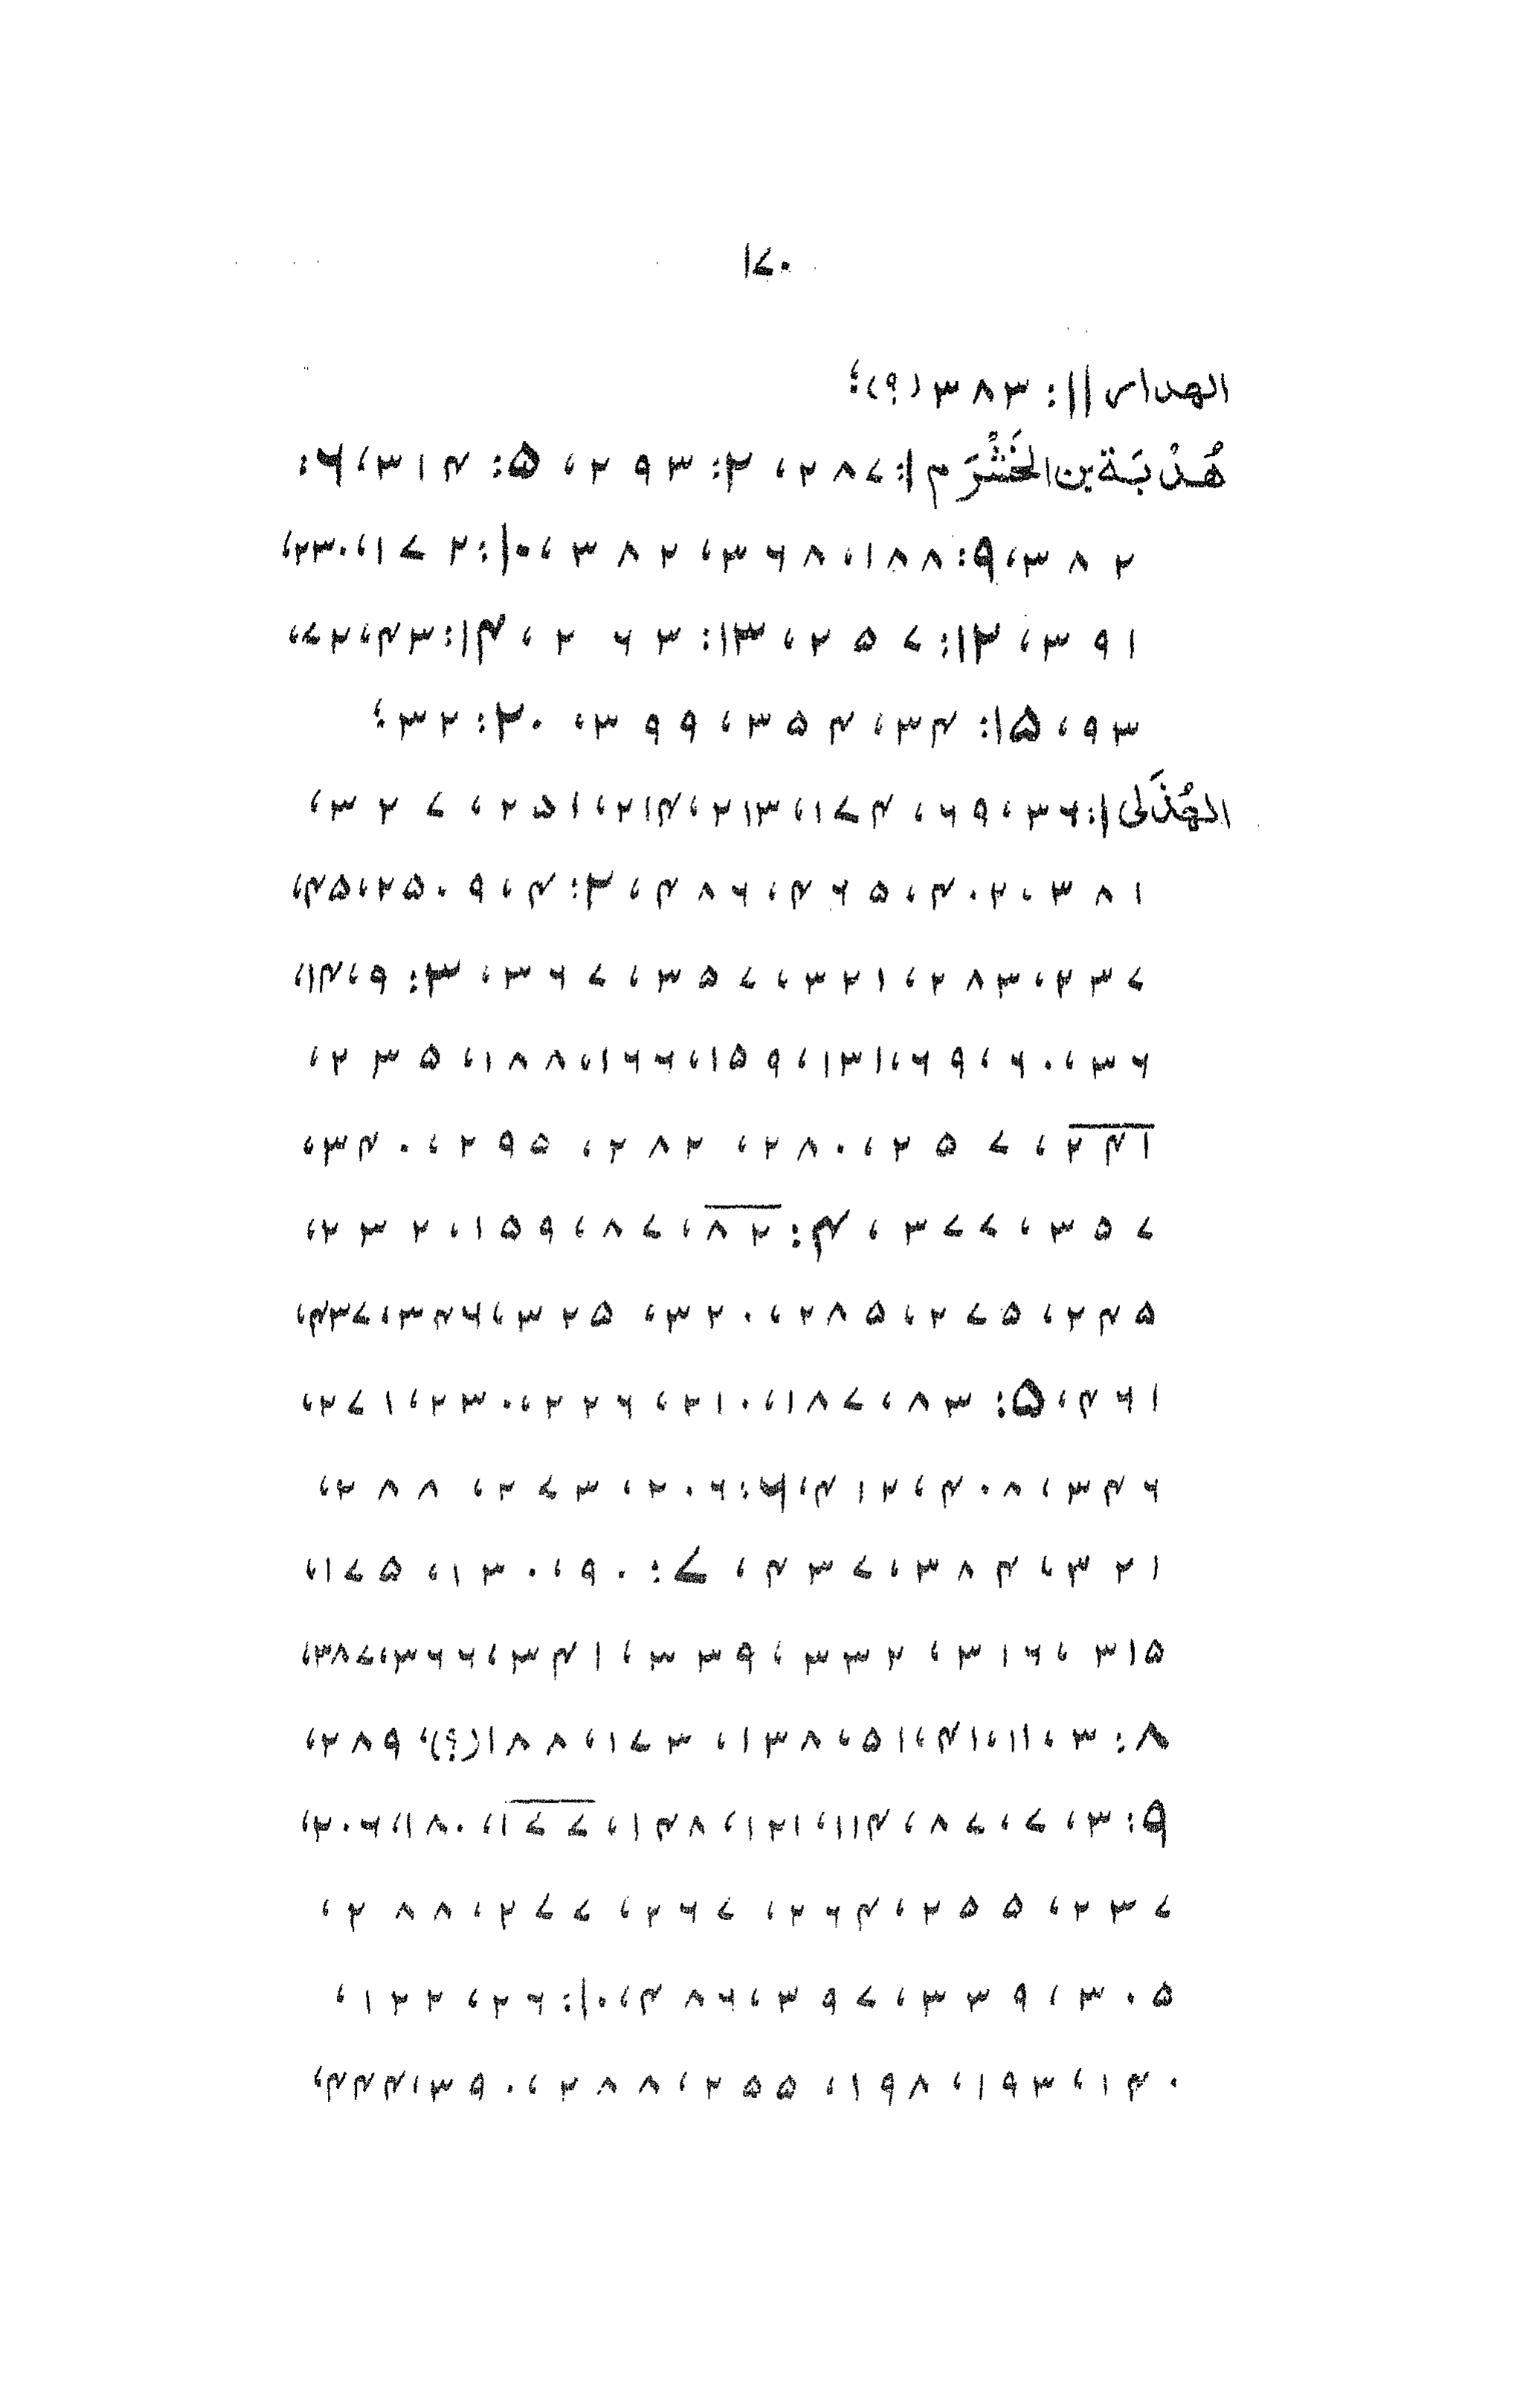 ١٧٠
الهداس ١١: ٣٨٣ (؟)؛
هُدْبَة بن الخَشْرَم ١: ٢٨٧، ٢: ٢٩٣، ٥: ٣١٤، ٦:
٣٨٢، ٩: ١٨٨، ٣٦٨، ٣٨٢، ١٠: ١٧٢، ٢٣٠،
٣٩١، ١٢: ٢٥٧، ١٣: ٢٦٣، ١٤: ٤٣، ٧٢،
٩٣، ١٥: ٣٤، ٣٥٤، ٣٩٩، ٢٠: ٣٢؛
الهُذَلى ١: ٣٦، ٦٩، ١٧٤، ٢١٣، ٢١٤، ٢٥١، ٣٢٧،
٣٨١، ٤٠٢، ٤٦٥، ٤٨٦، ٢: ٤، ٩، ٢٥، ٤٥،
٢٣٧، ٢٨٣، ٣٢١، ٣٥٧، ٣٦٧، ٣: ٩، ١٤،
٣٦، ٦٠، ٦٩، ١٣١، ١٥٩، ١٦٦، ١٨٨، ٢٣٥،
٢٤١، ٢٥٧، ٢٨٠، ٢٨٢، ٢٩٥، ٣٤٠،
٣٥٧، ٣٧٧، ٤: ٨٢، ٨٧، ١٥٩، ٢٣٢،
٢٤٥، ٢٧٥، ٢٨٥، ٣٢٠، ٣٢٥، ٣٤٦، ٤٣٧،
٤٦١، ٥: ٨٣، ١٨٧، ٢١٠، ٢٢٦، ٢٣٠، ٢٧١،
٣٤٦، ٤٠٨، ٤١٢، ٦: ٢٠٦، ٢٧٣، ٢٨٨،
٣٢١، ٣٨٤، ٤٣٧، ٧: ٩٠، ١٣٠، ١٧٥،
٣١٥، ٣١٦، ٣٣٢، ٣٣٩، ٣٤١، ٣٦٦، ٣٨٧،
٨: ٣، ١١، ١٤، ١٥، ١٣٨، ١٧٣، ١٨٨(؟)، ٢٨٩،
٩: ٣، ٧، ٨٧، ١١٤، ١٢١، ١٤٨، ١٧٧، ١٨٠، ٢٠٦،
٢٣٧، ٢٥٥، ٢٦٤، ٢٦٧، ٢٧٧، ٢٨٨،
٣٠٥، ٣٣٩، ٣٩٧، ٤٨٦، ١٠: ٢٦، ١٢٢،
١٤٠، ١٩٣، ١٩٨، ٢٥٥، ٢٨٨، ٣٩٠، ٤٤٤،